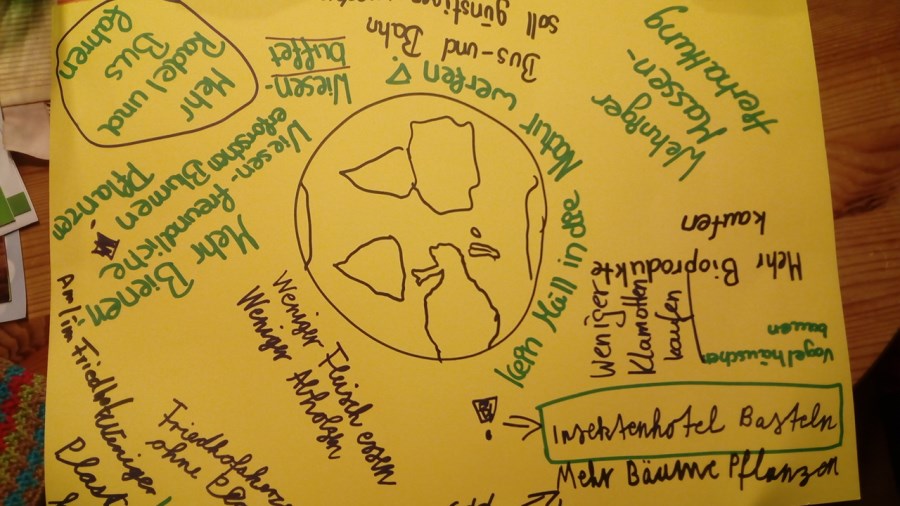 Mehr
Radel und
Bus
fahren
Wiesen-
Büffet
Bus-und Bahn
soll günstiger
Wehniger
Massen-
tierhaltung
Kein Müll in die Natur
werfen
Mehr Bioprodukte
kaufen
Weniger
Klamotten
kaufen
Vogelhäuschen
bauen
Insektenhotel Basteln
Mehr Bäume Pflanzen
Weniger Fleisch essen
Weniger Abholzen
Wiesen-
Mehr Bienen-
freundliche
Blumen
Pflanzen
Friedhofskerzen
ohne
Am/im Friedhof weniger